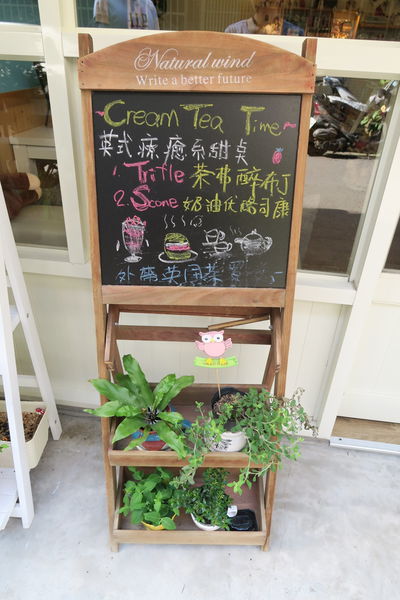 Natural wind
Write a better future
~Cream Tea Time~
英式療癒系甜点
1. Trifle 茶弗醉布丁
2. Scone 奶迪优鴿司康
外帶英国茶